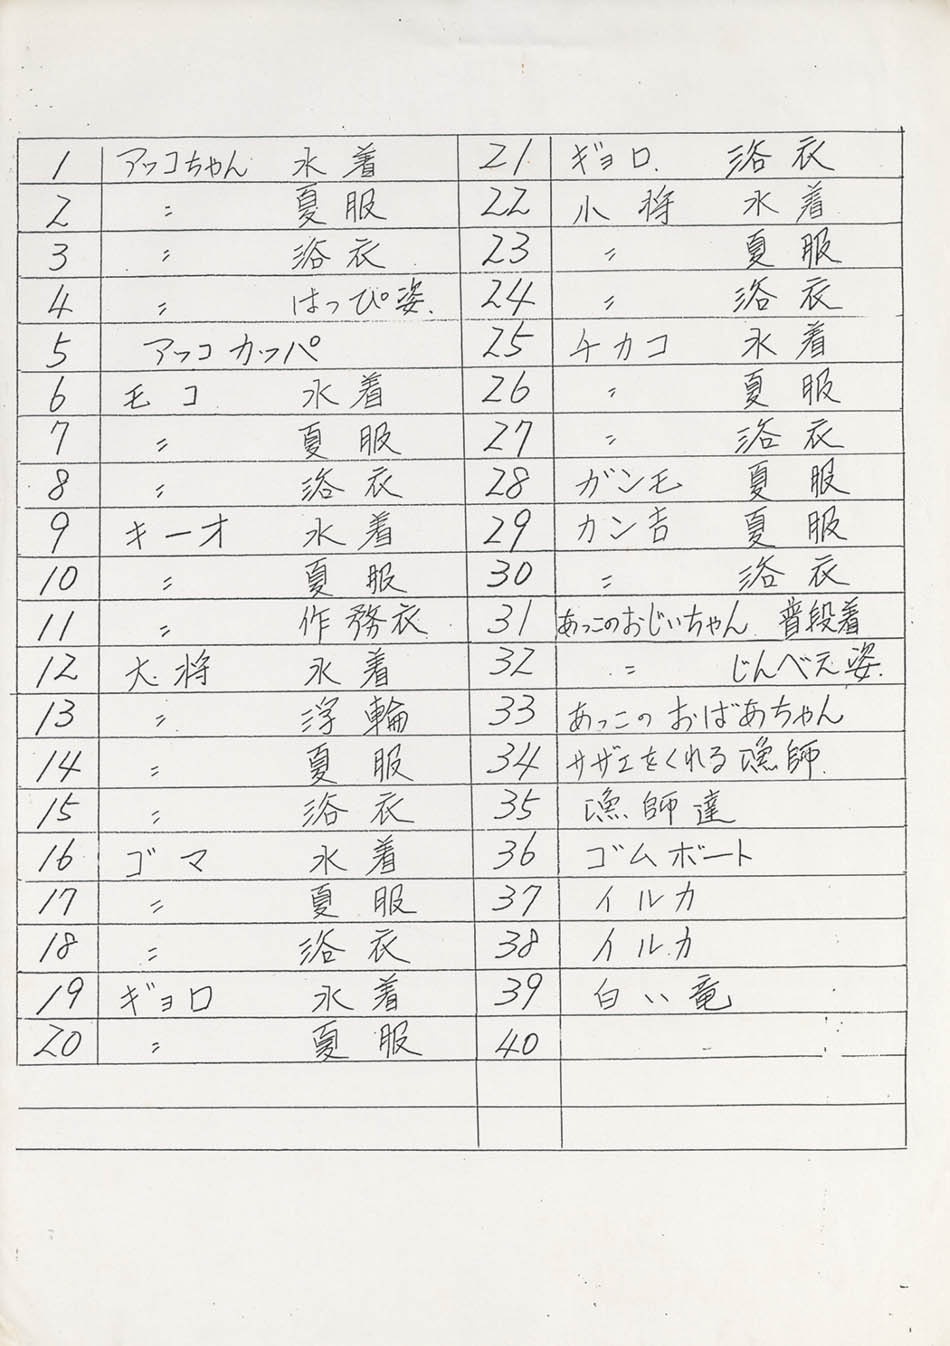 1 アッコちゃん 水着
2 〃 夏服
3 〃 浴衣
4 〃 はっぴ姿.
5 アッコカッパ
6 モコ 水着
7 〃 夏服
8 〃 浴衣
9 キーオ 水着
10 〃 夏服
11 〃 作務衣
12 大将 水着
13 〃 浮輪
14 〃 夏服
15 〃 浴衣
16 ゴマ 水着
17 〃 夏服
18 〃 浴衣
19 ギョロ 水着
20 〃 夏服
21 ギョロ. 浴衣
22 小将 水着
23 〃 夏服
24 〃 浴衣
25 チカコ 水着
26 〃 夏服
27 〃 浴衣
28 ガンモ 夏服
29 カン吉 夏服
30 〃 浴衣
31 あっこのおじいちゃん 普段着
32 〃 じんべえ姿.
33 あっこのおばあちゃん
34 サザエをくれる漁師.
35 漁師達
36 ゴムボート
37 イルカ
38 イルカ
39 白い竜
40